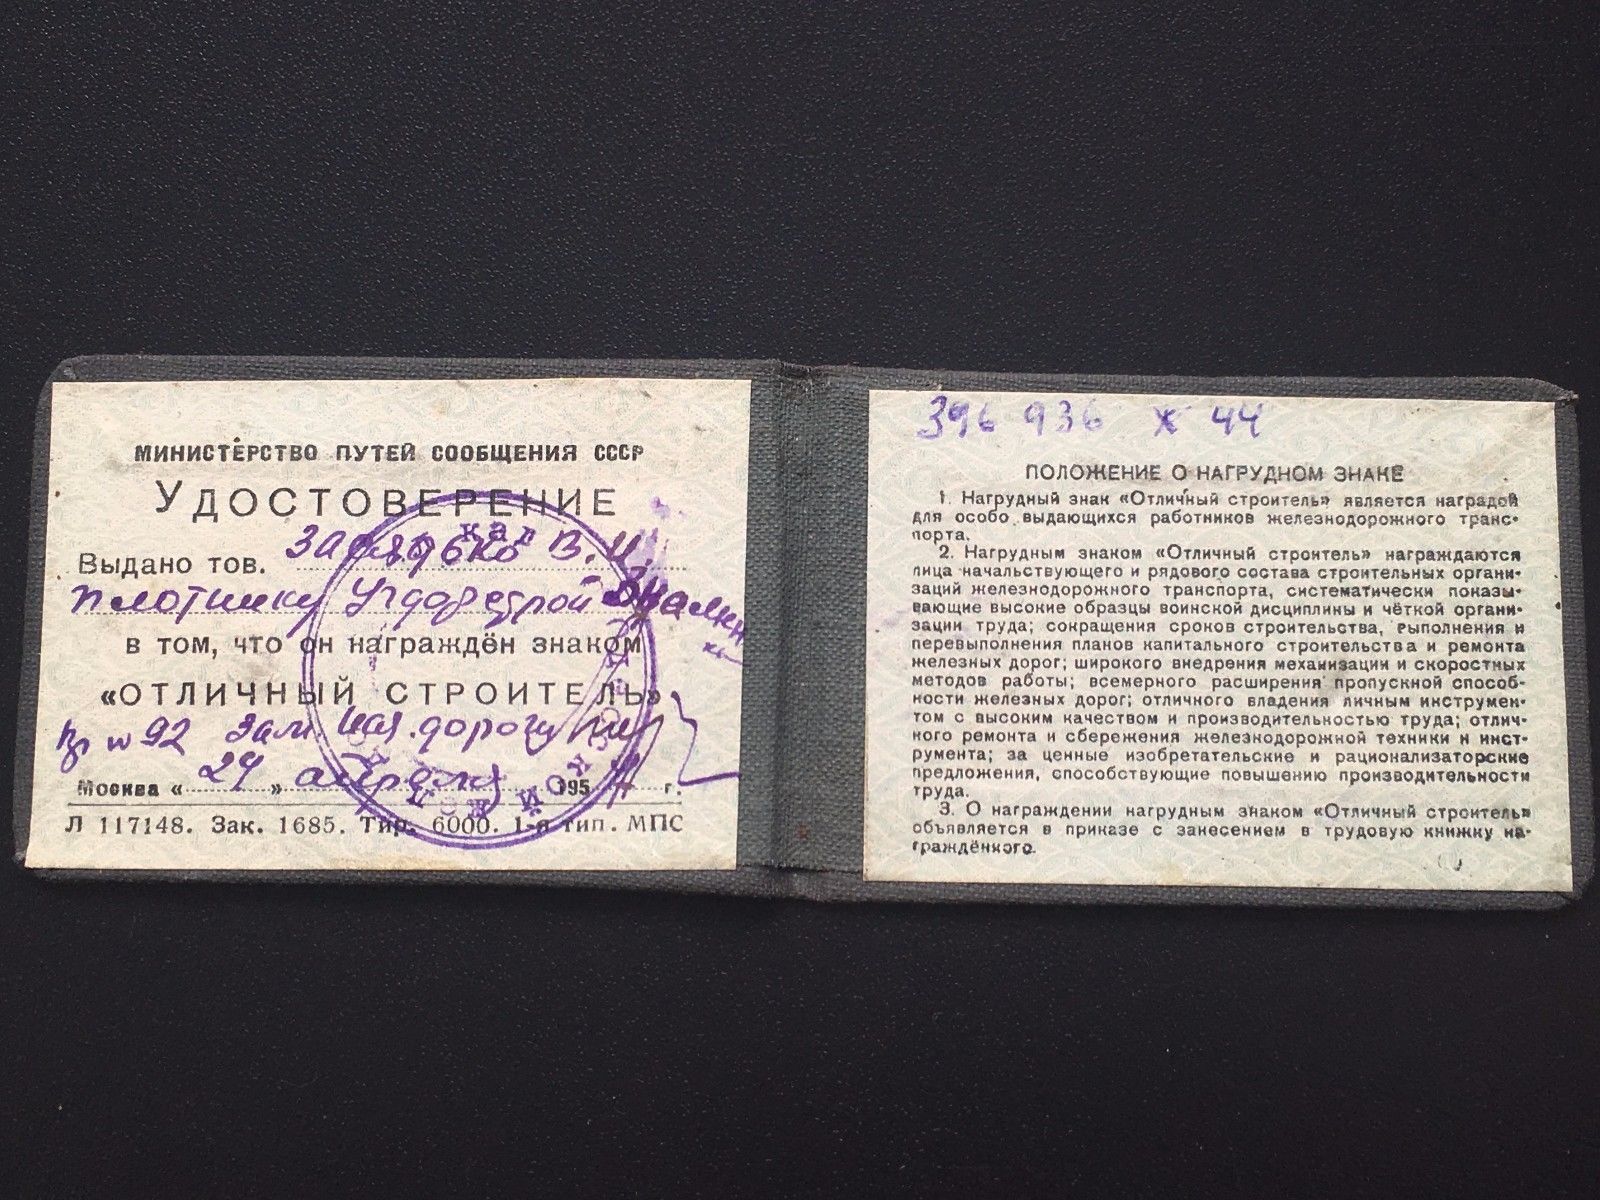 МИНИСТЕРСТВО ПУТЕЙ СООБЩЕНИЯ СССР
УДОСТОВЕРЕНИЕ
Выдано тов. В. И.
плотнику
в том, что он награждён знаком
«ОТЛИЧНЫЙ СТРОИТЕЛЬ»
92 Зам. Нач. дороги
Москва « 24 » апреля 195 г.
Л 117148. Зак. 1685. Тир. 6000. 1-я тип. МПС
396 936 х 44
ПОЛОЖЕНИЕ О НАГРУДНОМ ЗНАКЕ
1. Нагрудный знак «Отличный строитель» является наградой
для особо выдающихся работников железнодорожного транс-
порта.
2. Нагрудным знаком «Отличный строитель» награждаются
лица начальствующего и рядового состава строительных органи-
заций железнодорожного транспорта, систематически показы-
вающие высокие образцы воинской дисциплины и чёткой органи-
зации труда; сокращения сроков строительства, выполнения и
перевыполнения планов капитального строительства и ремонта
железных дорог; широкого внедрения механизации и скоростных
методов работы; всемерного расширения пропускной способ-
ности железных дорог; отличного владения личным инструмен-
том с высоким качеством и производительностью труда; отлич-
ного ремонта и сбережения железнодорожной техники и инст-
румента; за ценные изобретательские и рационализаторские
предложения, способствующие повышению производительности
труда.
3. О награждении нагрудным знаком «Отличный строитель»
объявляется в приказе с занесением в трудовую книжку на-
граждённого.